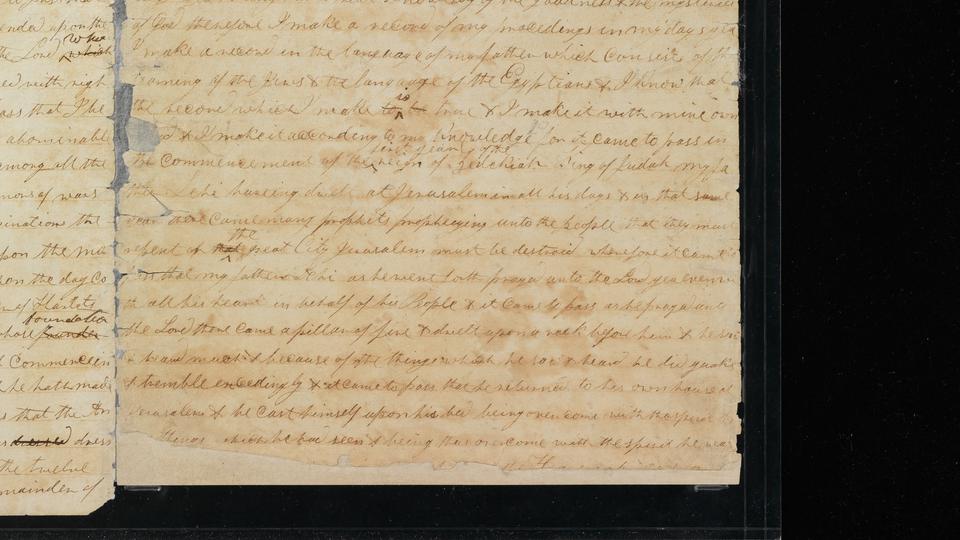 upon the
who
the Lord which
ed with righ
ass that I be
abominable
among all the
mors of wars
ination the
upon the mo
on the day co
of Harlots
foundation
whose founder
Commencem
he hath made
s that the An
dressed dress
the twelve
mainder of
of God therefore I make a record of my proceedings in my days yea
I make a record in the language of my father which consist of the
learning of the Jews & the language of the Egyptians & I know that
is
the record which I make to be true & I make it with mine own
& I make it according to my knowledge for it came to pass in
first year of the
the commencement of the reign of Zedekiah King of Judah my fa
ther Lehi haveing dwelt at Jerusalem in all his days & in that same
year there came many prophets prophesying unto the people that they must
the
repent or that great City Jerusalem must be destroid wherefore it came to
that my father Lehi as he went forth prayed unto the Lord yea even wi
th all his heart in behalf of his People & it came to pass as he prayed unto
the Lord there came a pillar of fire & dwelt upon a rock before him & he saw
& heard much & because of the things which he saw & heard he did quake
& tremble exceedingly & it came to pass that he returned to his own house at
Jerusalem & he cast himself upon his bed being overcome with the spirit &
things which he had seen & being thus overcome with the spirit he was